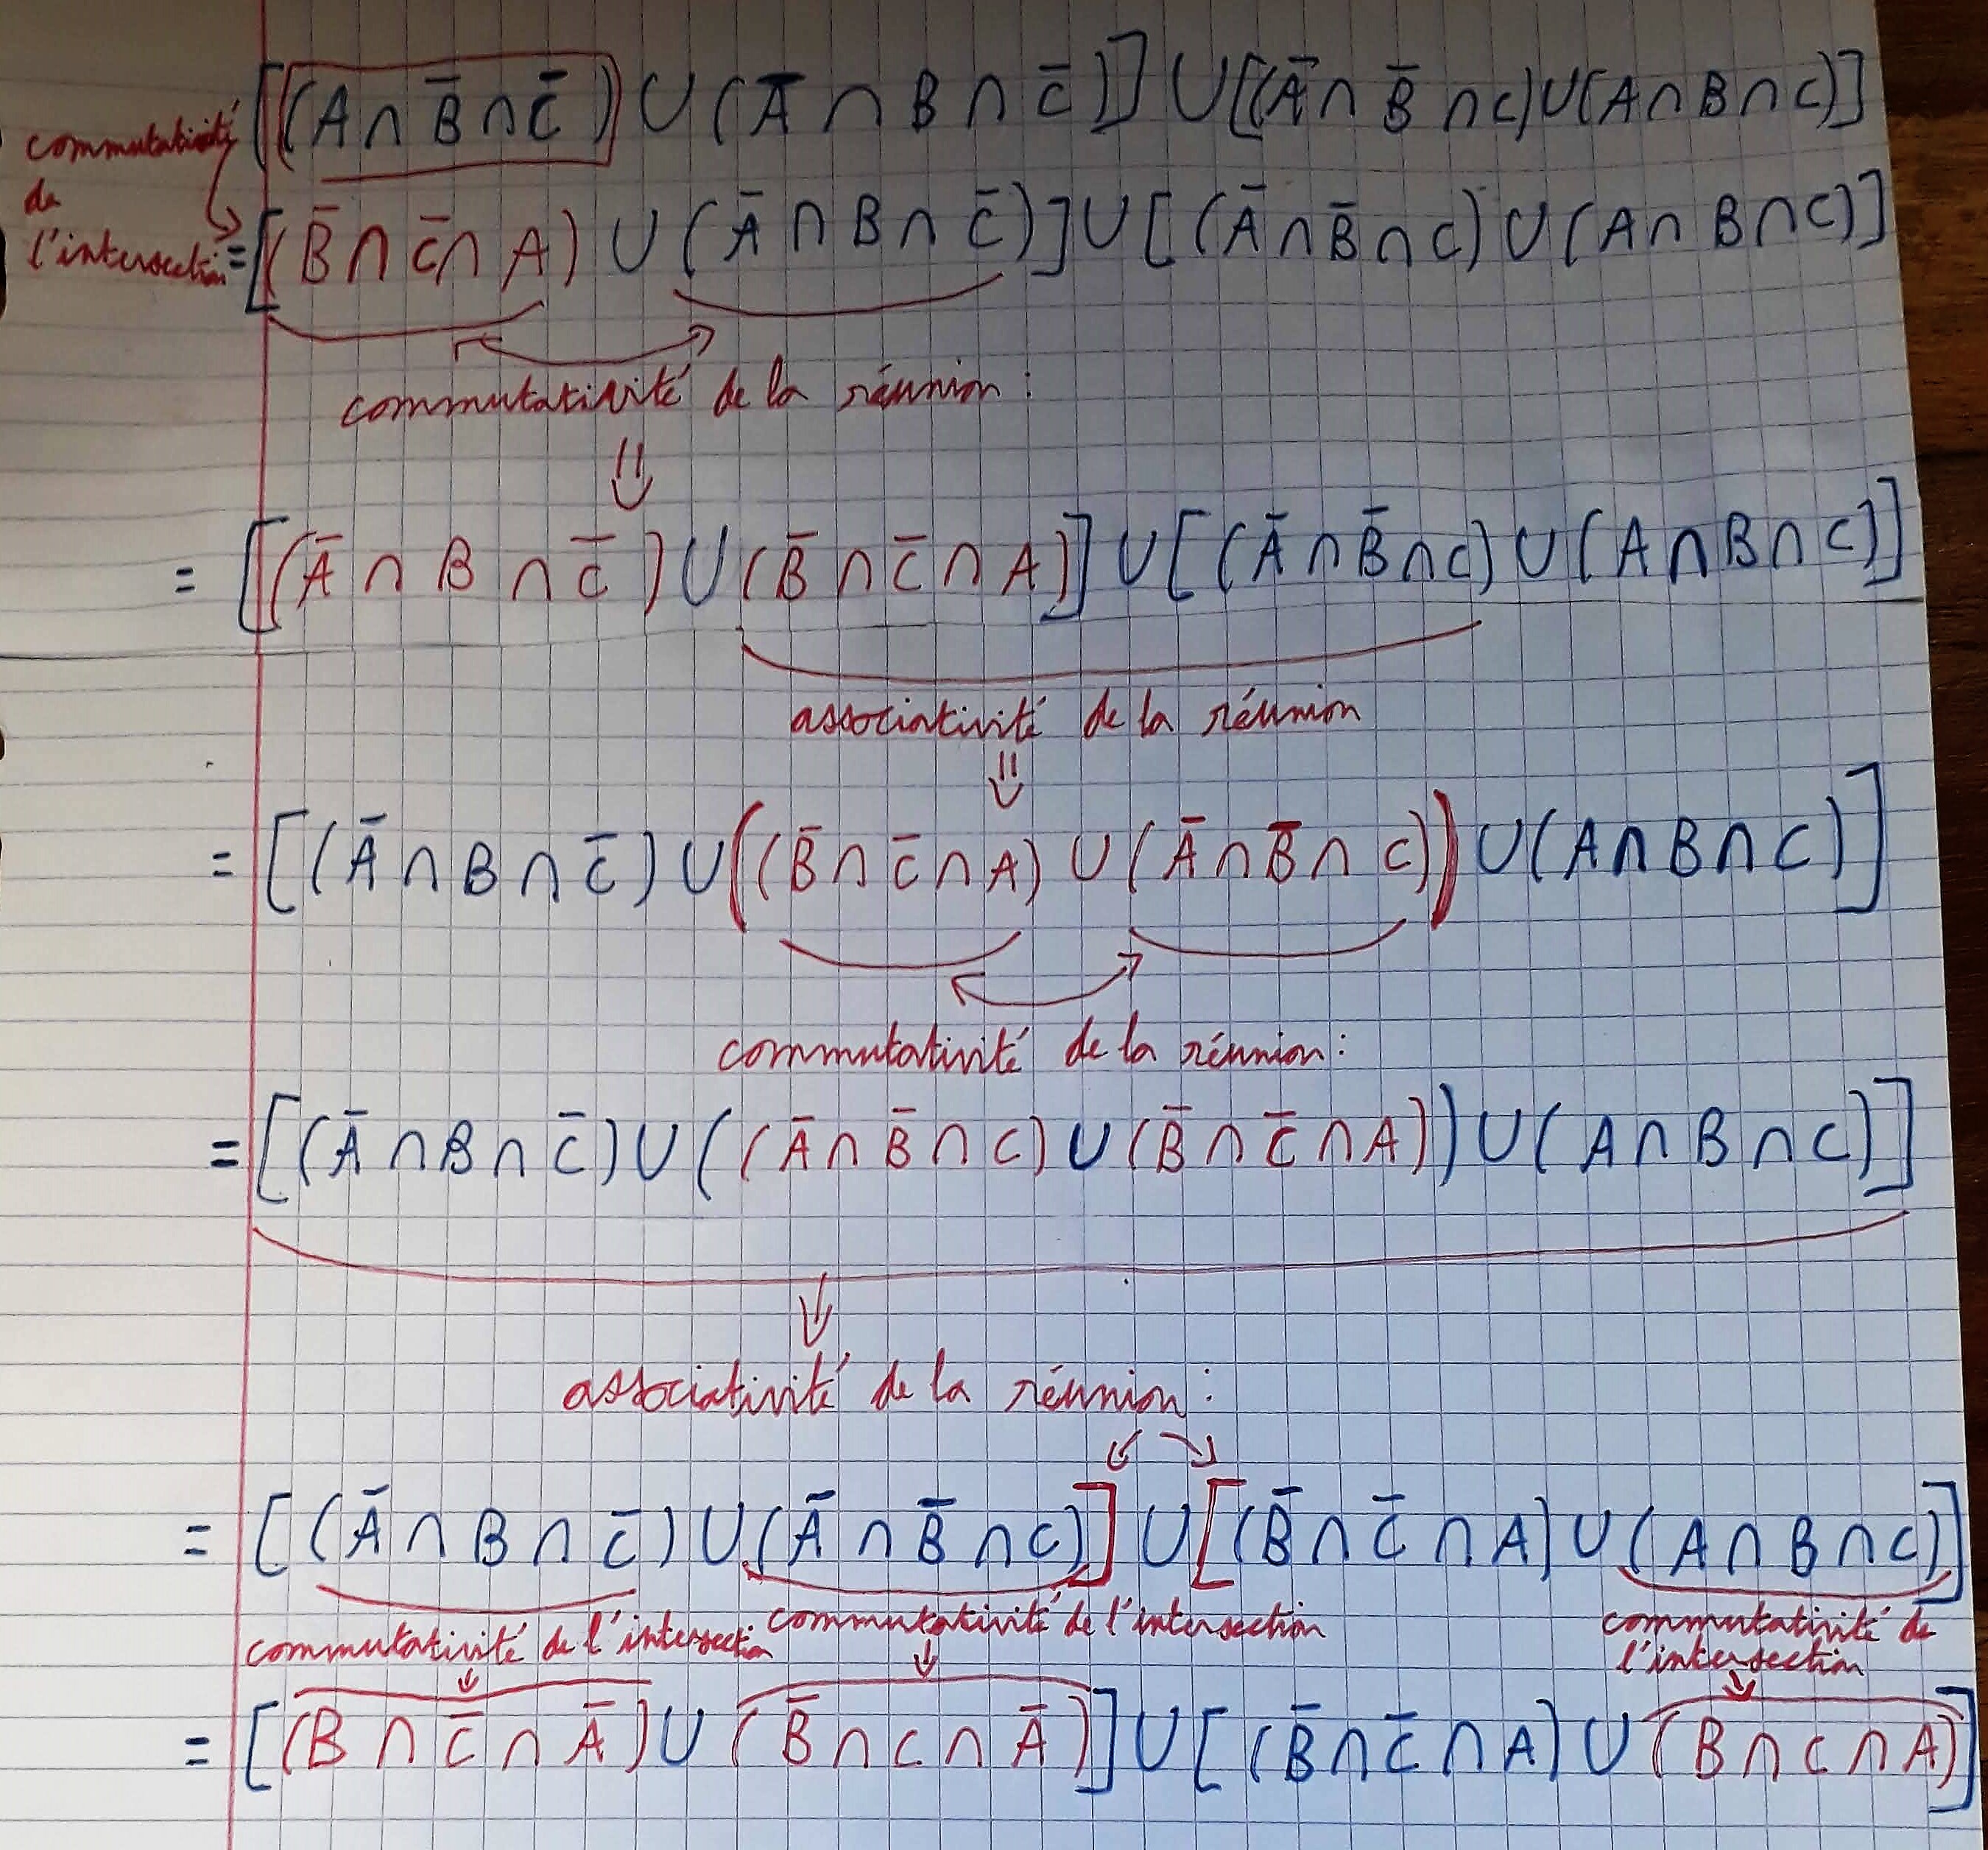 [(A ∩ B̄ ∩ C̄) ∪ (Ā ∩ B ∩ C̄)] ∪ [(Ā ∩ B̄ ∩ C) ∪ (A ∩ B ∩ C)]
commutativité
de
l'intersection
= [(B̄ ∩ C̄ ∩ A) ∪ (Ā ∩ B ∩ C̄)] ∪ [(Ā ∩ B̄ ∩ C) ∪ (A ∩ B ∩ C)]
commutativité de la réunion :
⇓
= [(Ā ∩ B ∩ C̄) ∪ (B̄ ∩ C̄ ∩ A)] ∪ [(Ā ∩ B̄ ∩ C) ∪ (A ∩ B ∩ C)]
associativité de la réunion
⇓
= [(Ā ∩ B ∩ C̄) ∪ ((B̄ ∩ C̄ ∩ A) ∪ (Ā ∩ B̄ ∩ C)) ∪ (A ∩ B ∩ C)]
commutativité de la réunion :
= [(Ā ∩ B ∩ C̄) ∪ ((Ā ∩ B̄ ∩ C) ∪ (B̄ ∩ C̄ ∩ A)) ∪ (A ∩ B ∩ C)]
associativité de la réunion :
= [(Ā ∩ B ∩ C̄) ∪ (Ā ∩ B̄ ∩ C)] ∪ [(B̄ ∩ C̄ ∩ A) ∪ (A ∩ B ∩ C)]
commutativité de l'intersection
commutativité de l'intersection
commutativité de
l'intersection
= [(B ∩ C̄ ∩ Ā) ∪ (B̄ ∩ C ∩ Ā)] ∪ [(B̄ ∩ C̄ ∩ A) ∪ (B ∩ C ∩ A)]